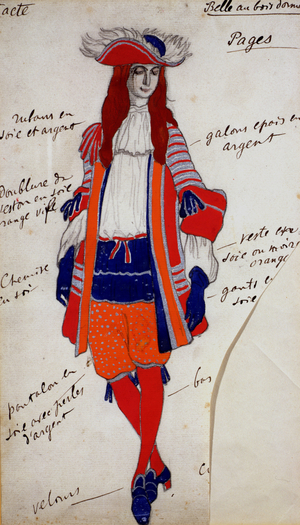 acte
Belle au bois dorm
Pages
rubans en
soie et argent
galons epais en
argent
Doublure de
veston en soie
orange vif
veste en
soie ou moire
orange
Chemise
en soie
gants en
soie
pantalon en
soie avec perles
d'argent
bas
velours